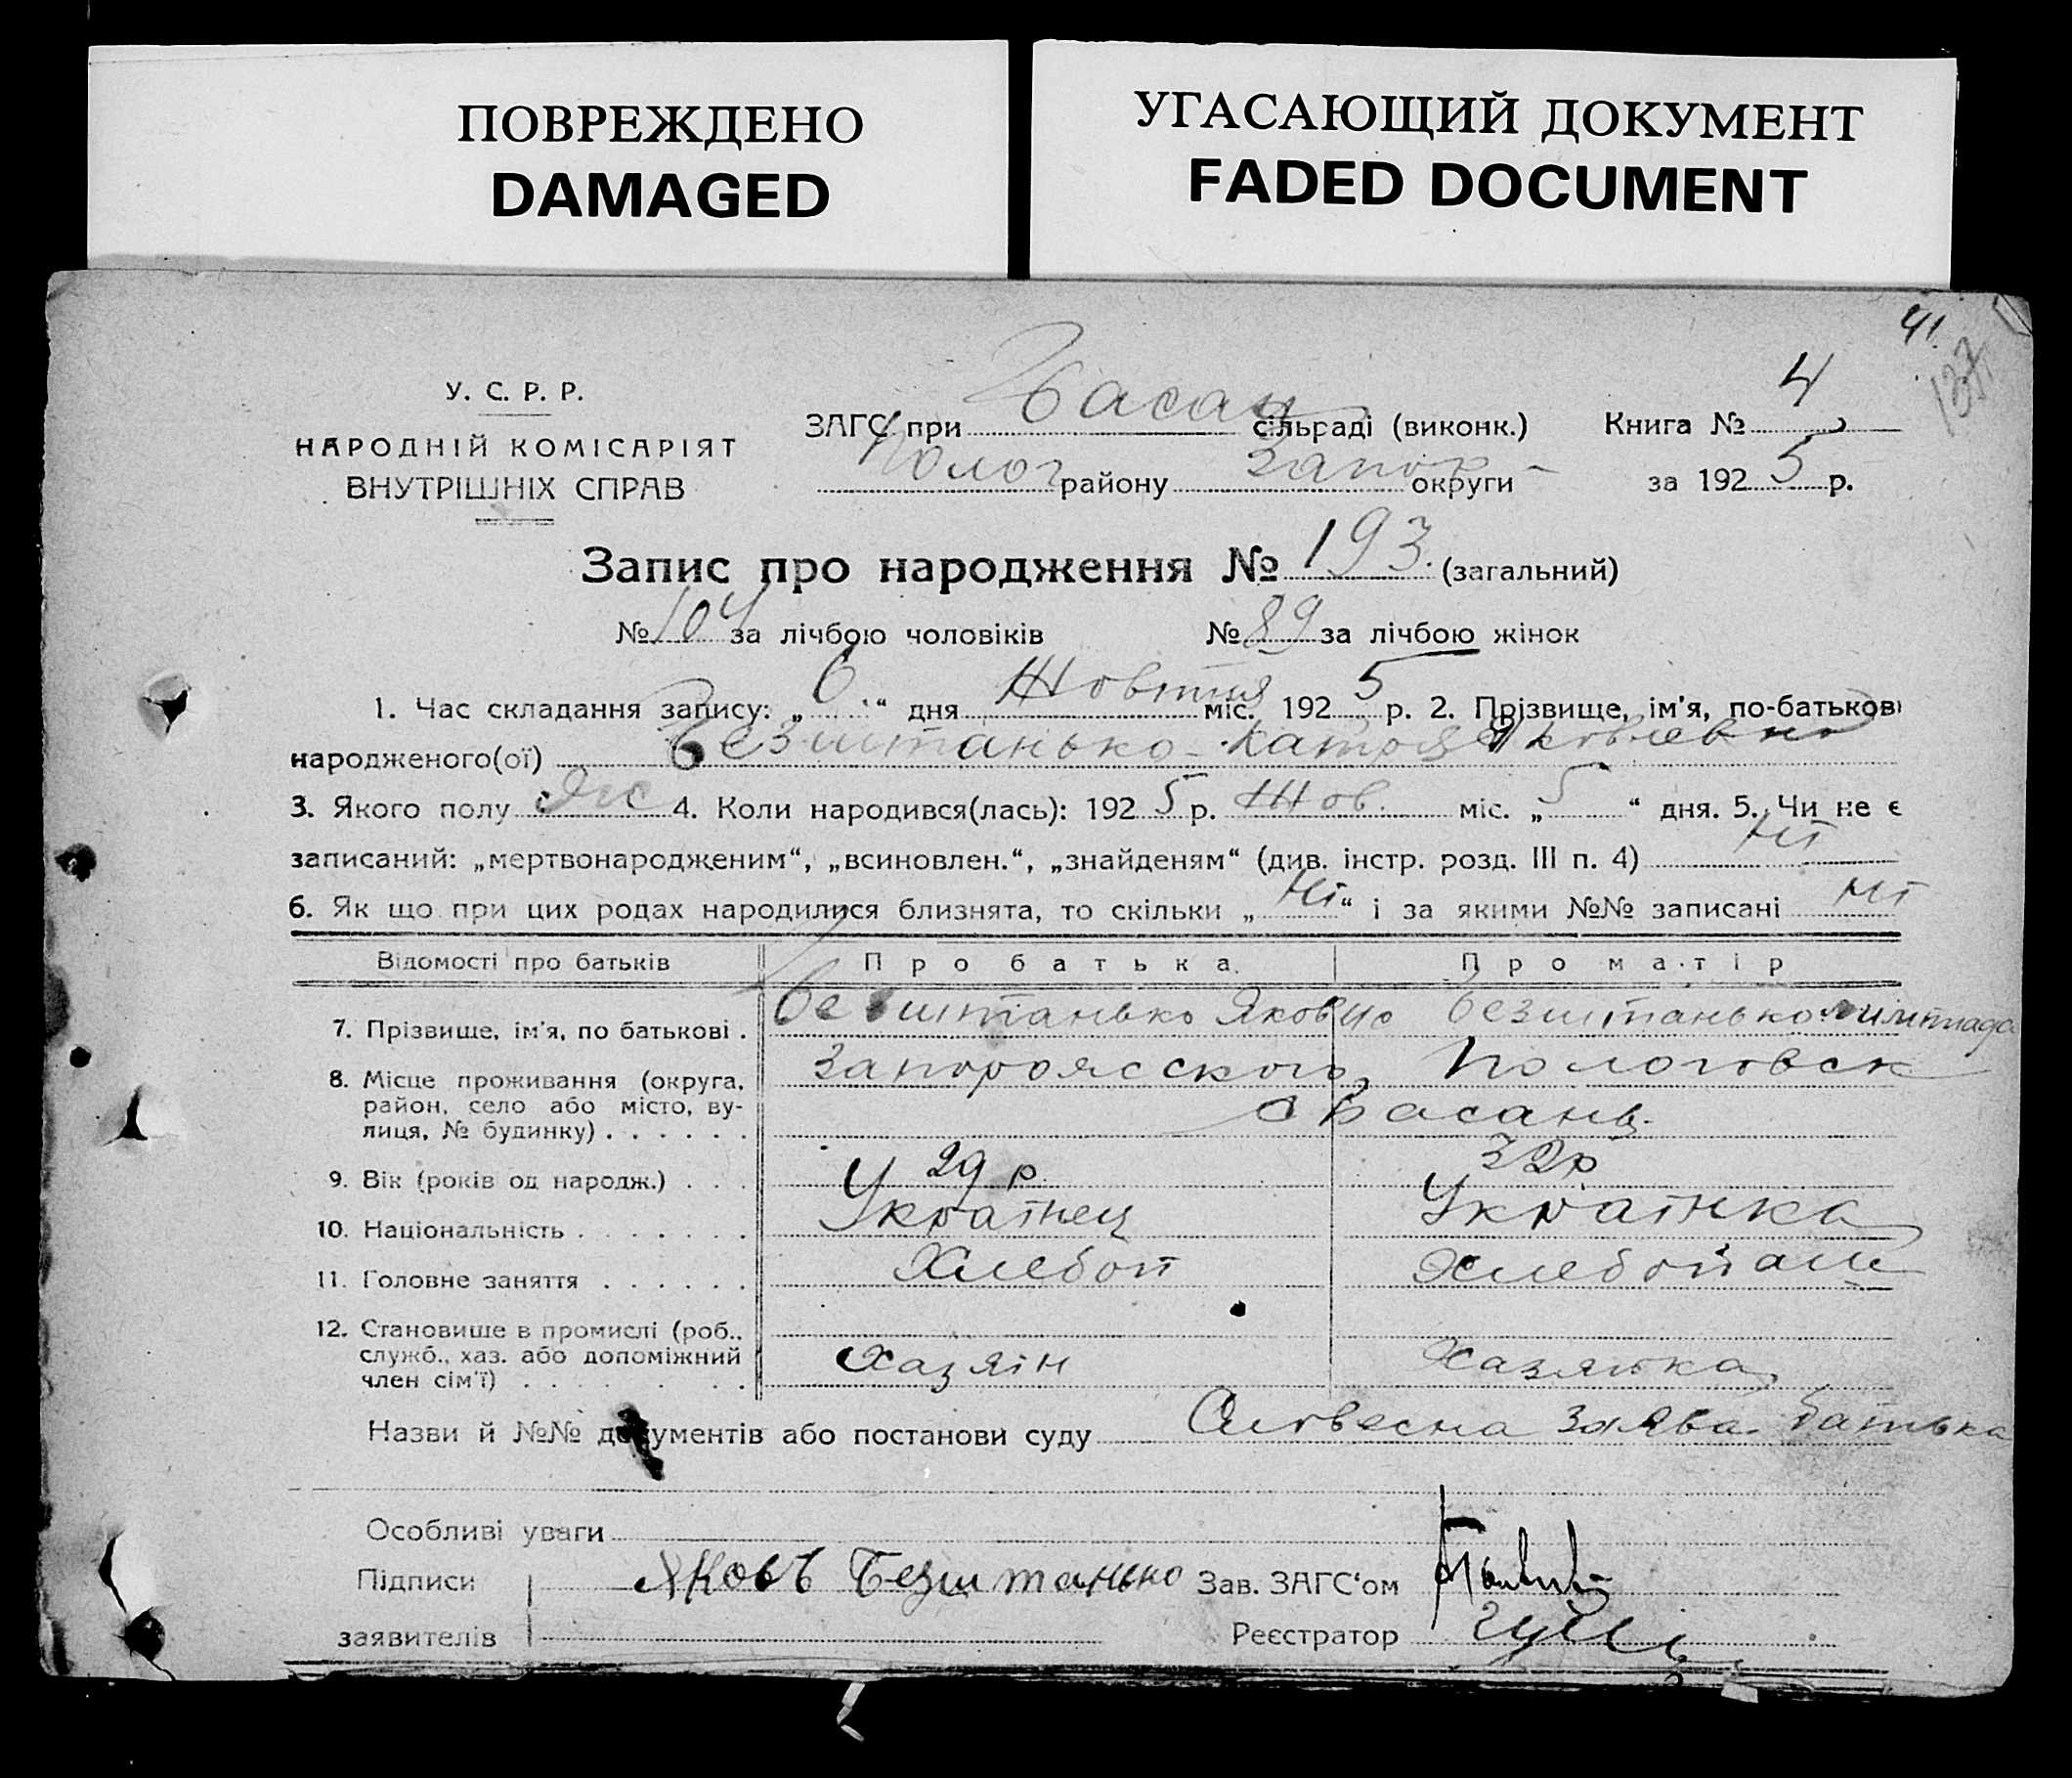 ПОВРЕЖДЕНО
DAMAGED
УГАСАЮЩИЙ ДОКУМЕНТ
FADED DOCUMENT
41.
137
У. С. Р. Р.
НАРОДНІЙ КОМІСАРІЯТ
ВНУТРІШНІХ СПРАВ
ЗАГС при Басан сільраді (виконк.)
Полог району Запор округи
Книга № 4
за 1925 р.
Запис про народження № 193. (загальний)
№ 104 за лічбою чоловіків № 89 за лічбою жінок
1. Час складання запису: „6“ дня Жовтня міс. 1925 р. 2. Прізвище, ім'я, по-батькові
народженого(ої) Безштанько Катря Яковлевно
3. Якого полу жс 4. Коли народився(лась): 1925 р. Жов. міс. „5“ дня. 5. Чи не є
записаний: „мертвонародженим“, „всиновлен.“, „знайденям“ (див. інстр. розд. III п. 4) Ні
6. Як що при цих родах народилися близнята, то скільки „Ні“ і за якими №№ записані Ні
Відомості про батьків Про батька. Про матір
7. Прізвище, ім'я, по батькові . Безштанько Яков Безштанько
8. Місце проживання (округа, район, село або місто, вулиця, № будинку) . . . . . . Запорожского, Пологовск
с Басань
9. Вік (років од народж.) . . . 29 р. 32 р
10. Національність . . . . . . . Українец Українка
11. Головне заняття . . . . . . Хлебоп Хлебопаш
12. Становище в промислі (роб., служб., хаз. або допоміжний член сім'ї) . . . . . . . Хазяін Хазяйка
Назви й №№ документів або постанови суду Словесна заява батька
Особливі уваги
Підписи Яковъ Безштанько Зав. ЗАГС'ом
заявителів Реєстратор